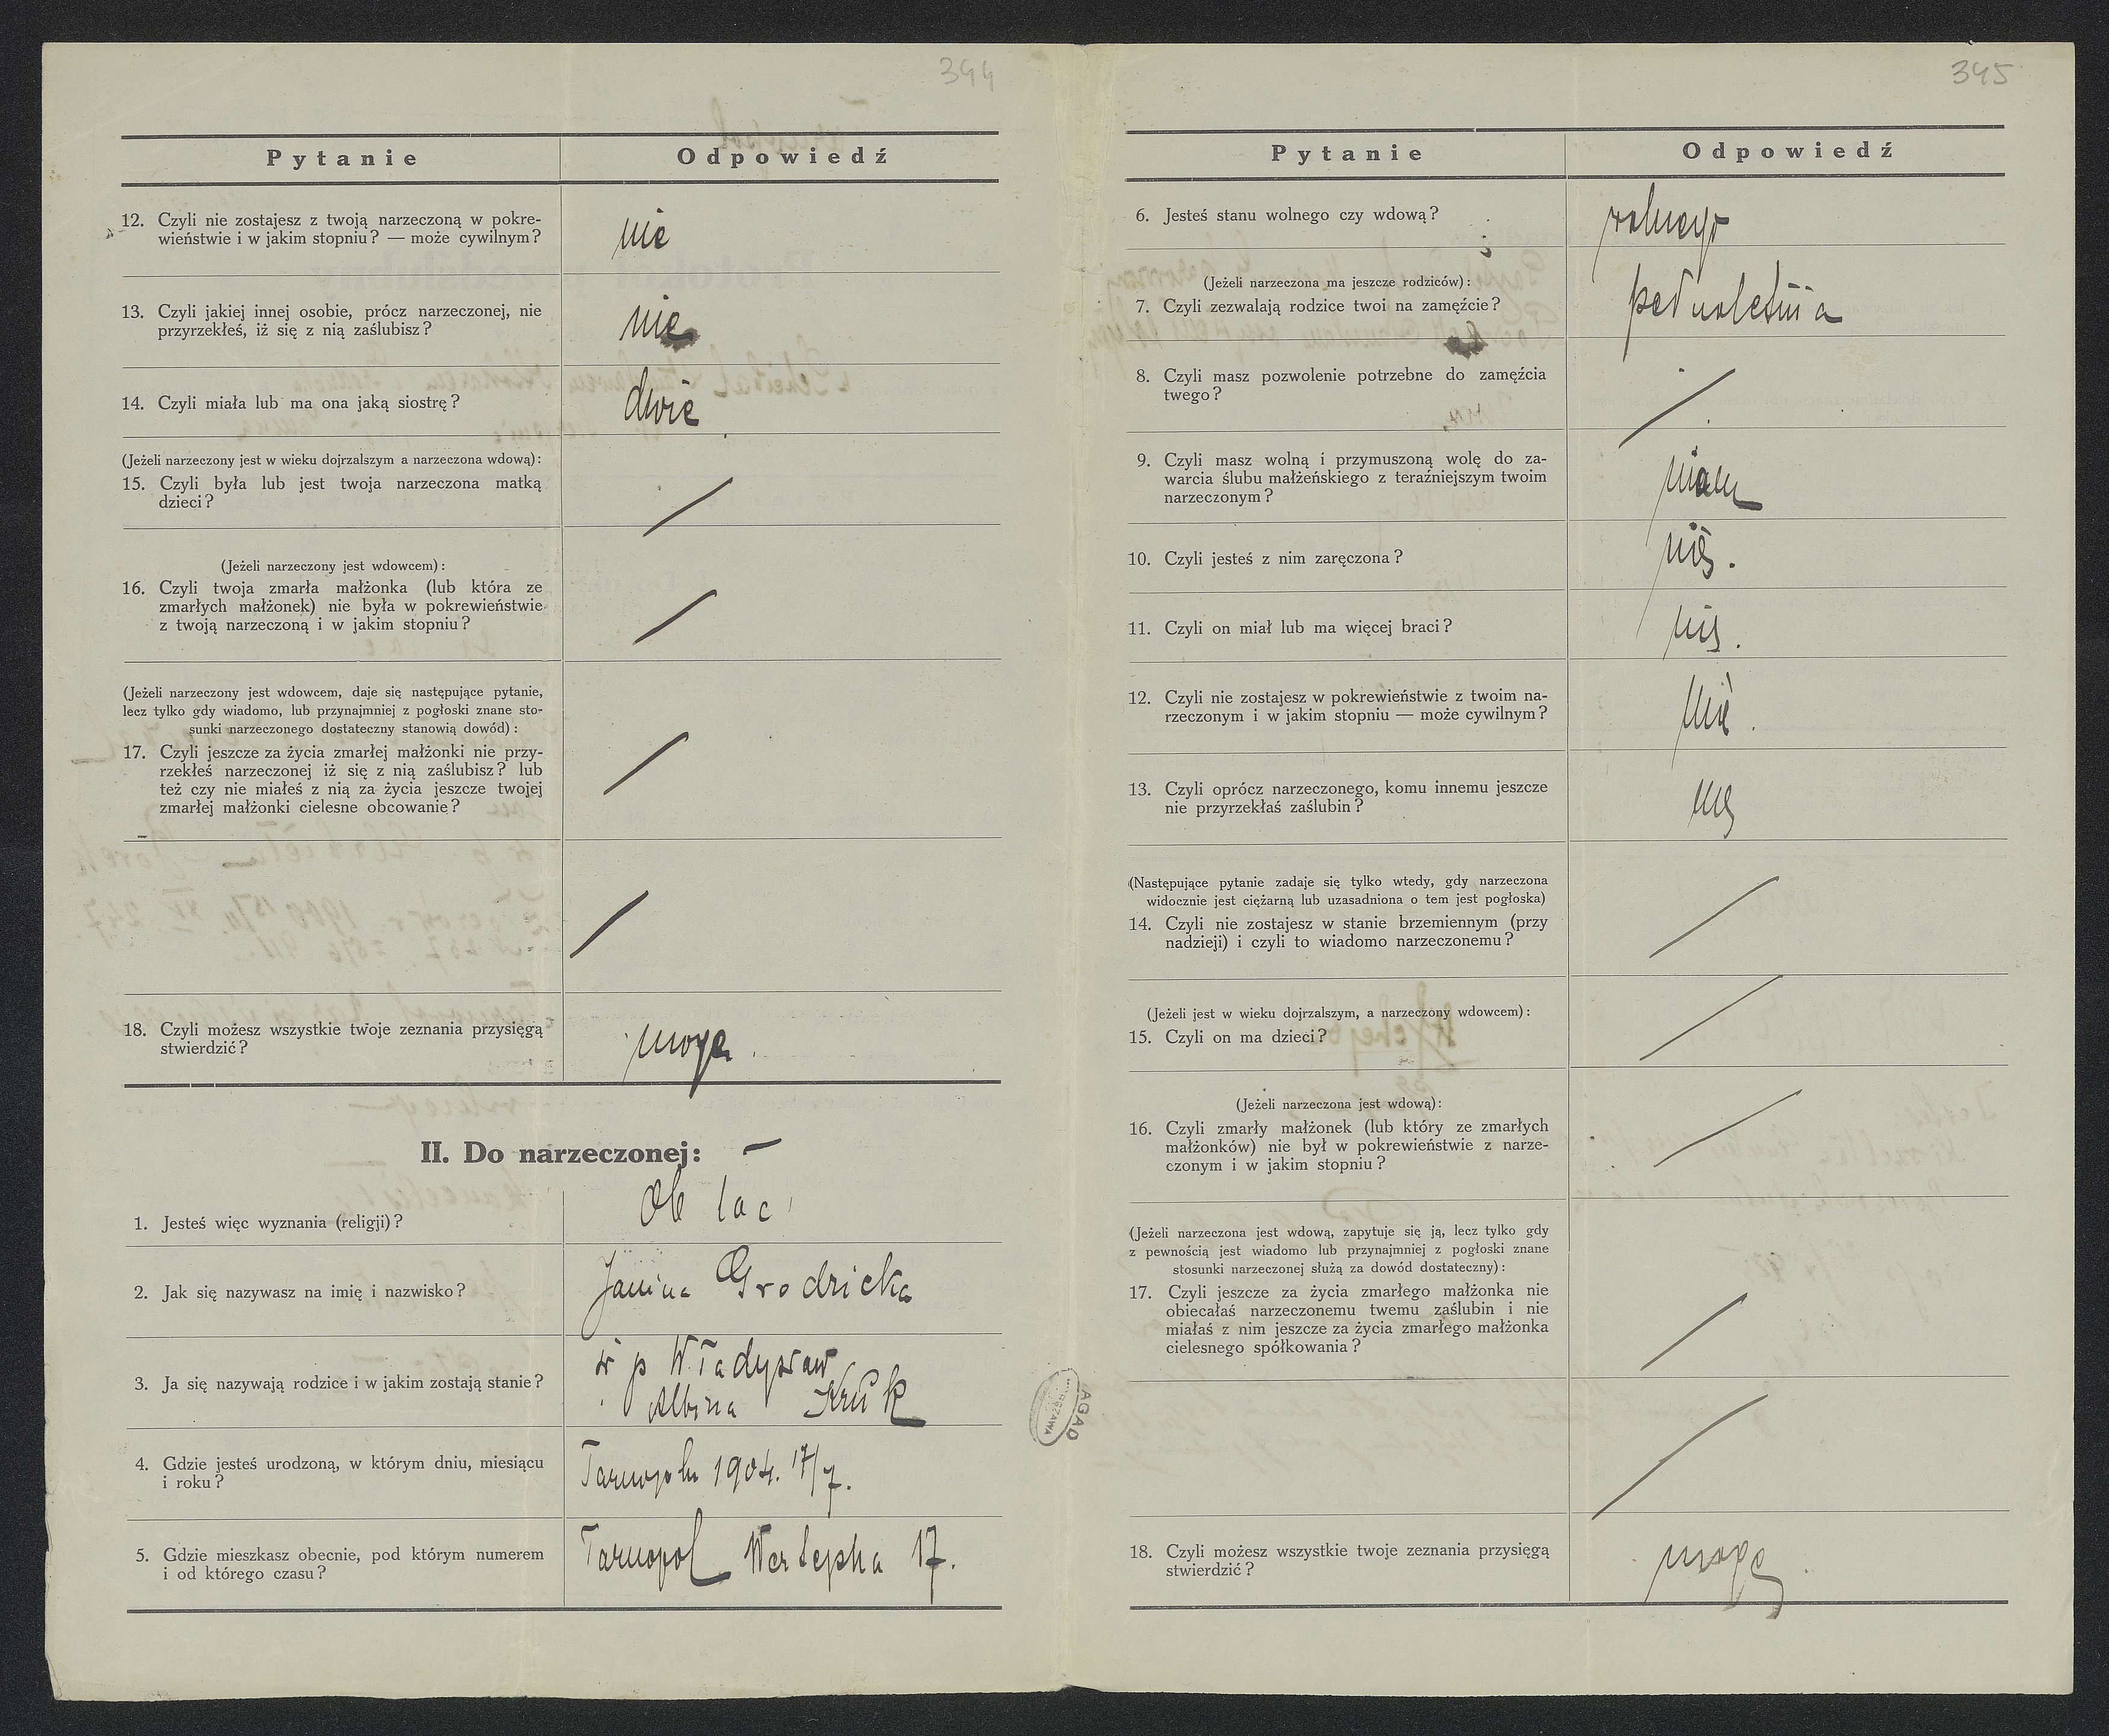 344
Pytanie
Odpowiedź
12. Czyli nie zostajesz z twoją narzeczoną w pokre-
wieństwie i w jakim stopniu? — może cywilnym?
nie
13. Czyli jakiej innej osobie, prócz narzeczonej, nie
przyrzekłeś, iż się z nią zaślubisz?
nie
14. Czyli miała lub ma ona jaką siostrę?
dwie
(Jeżeli narzeczony jest w wieku dojrzalszym a narzeczona wdową):
15. Czyli była lub jest twoja narzeczona matką
dzieci?
/
(Jeżeli narzeczony jest wdowcem):
16. Czyli twoja zmarła małżonka (lub która ze
zmarłych małżonek) nie była w pokrewieństwie
z twoją narzeczoną i w jakim stopniu?
/
(Jeżeli narzeczony jest wdowcem, daje się następujące pytanie,
lecz tylko gdy wiadomo, lub przynajmniej z pogłoski znane sto-
sunki narzeczonego dostateczny stanowią dowód):
17. Czyli jeszcze za życia zmarłej małżonki nie przy-
rzekłeś narzeczonej iż się z nią zaślubisz? lub
też czy nie miałeś z nią za życia jeszcze twojej
zmarłej małżonki cielesne obcowanie?
/
/
18. Czyli możesz wszystkie twoje zeznania przysięgą
stwierdzić?
mogę
II. Do narzeczonej:
1. Jesteś więc wyznania (religji)?
ob lac
2. Jak się nazywasz na imię i nazwisko?
Janina Grodzicka
3. Ja się nazywają rodzice i w jakim zostają stanie?
ś p Władysław
Albina Kruk
4. Gdzie jesteś urodzoną, w którym dniu, miesiącu
i roku?
Tarnopolu 1904. 17/7.
5. Gdzie mieszkasz obecnie, pod którym numerem
i od którego czasu?
Tarnopol Wertepska 17.
345
Pytanie
Odpowiedź
6. Jesteś stanu wolnego czy wdową?
wolnego
(Jeżeli narzeczona ma jeszcze rodziców):
7. Czyli zezwalają rodzice twoi na zamęźcie?
pełnoletnia
8. Czyli masz pozwolenie potrzebne do zamęźcia
twego?
/
9. Czyli masz wolną i przymuszoną wolę do za-
warcia ślubu małżeńskiego z teraźniejszym twoim
narzeczonym?
mam
10. Czyli jesteś z nim zaręczona?
nie.
11. Czyli on miał lub ma więcej braci?
nie.
12. Czyli nie zostajesz w pokrewieństwie z twoim na-
rzeczonym i w jakim stopniu — może cywilnym?
nie.
13. Czyli oprócz narzeczonego, komu innemu jeszcze
nie przyrzekłaś zaślubin?
nie
(Następujące pytanie zadaje się tylko wtedy, gdy narzeczona
widocznie jest ciężarną lub uzasadniona o tem jest pogłoska)
14. Czyli nie zostajesz w stanie brzemiennym (przy
nadzieji) i czyli to wiadomo narzeczonemu?
/
(Jeżeli jest w wieku dojrzalszym, a narzeczony wdowcem):
15. Czyli on ma dzieci?
/
(Jeżeli narzeczona jest wdową):
16. Czyli zmarły małżonek (lub który ze zmarłych
małżonków) nie był w pokrewieństwie z narze-
czonym i w jakim stopniu?
/
(Jeżeli narzeczona jest wdową, zapytuje się ją, lecz tylko gdy
z pewnością jest wiadomo lub przynajmniej z pogłoski znane
stosunki narzeczonej służą za dowód dostateczny):
17. Czyli jeszcze za życia zmarłego małżonka nie
obiecałaś narzeczonemu twemu zaślubin i nie
miałaś z nim jeszcze za życia zmarłego małżonka
cielesnego spółkowania?
/
/
18. Czyli możesz wszystkie twoje zeznania przysięgą
stwierdzić?
mogę
AGAD
WARSZAWA